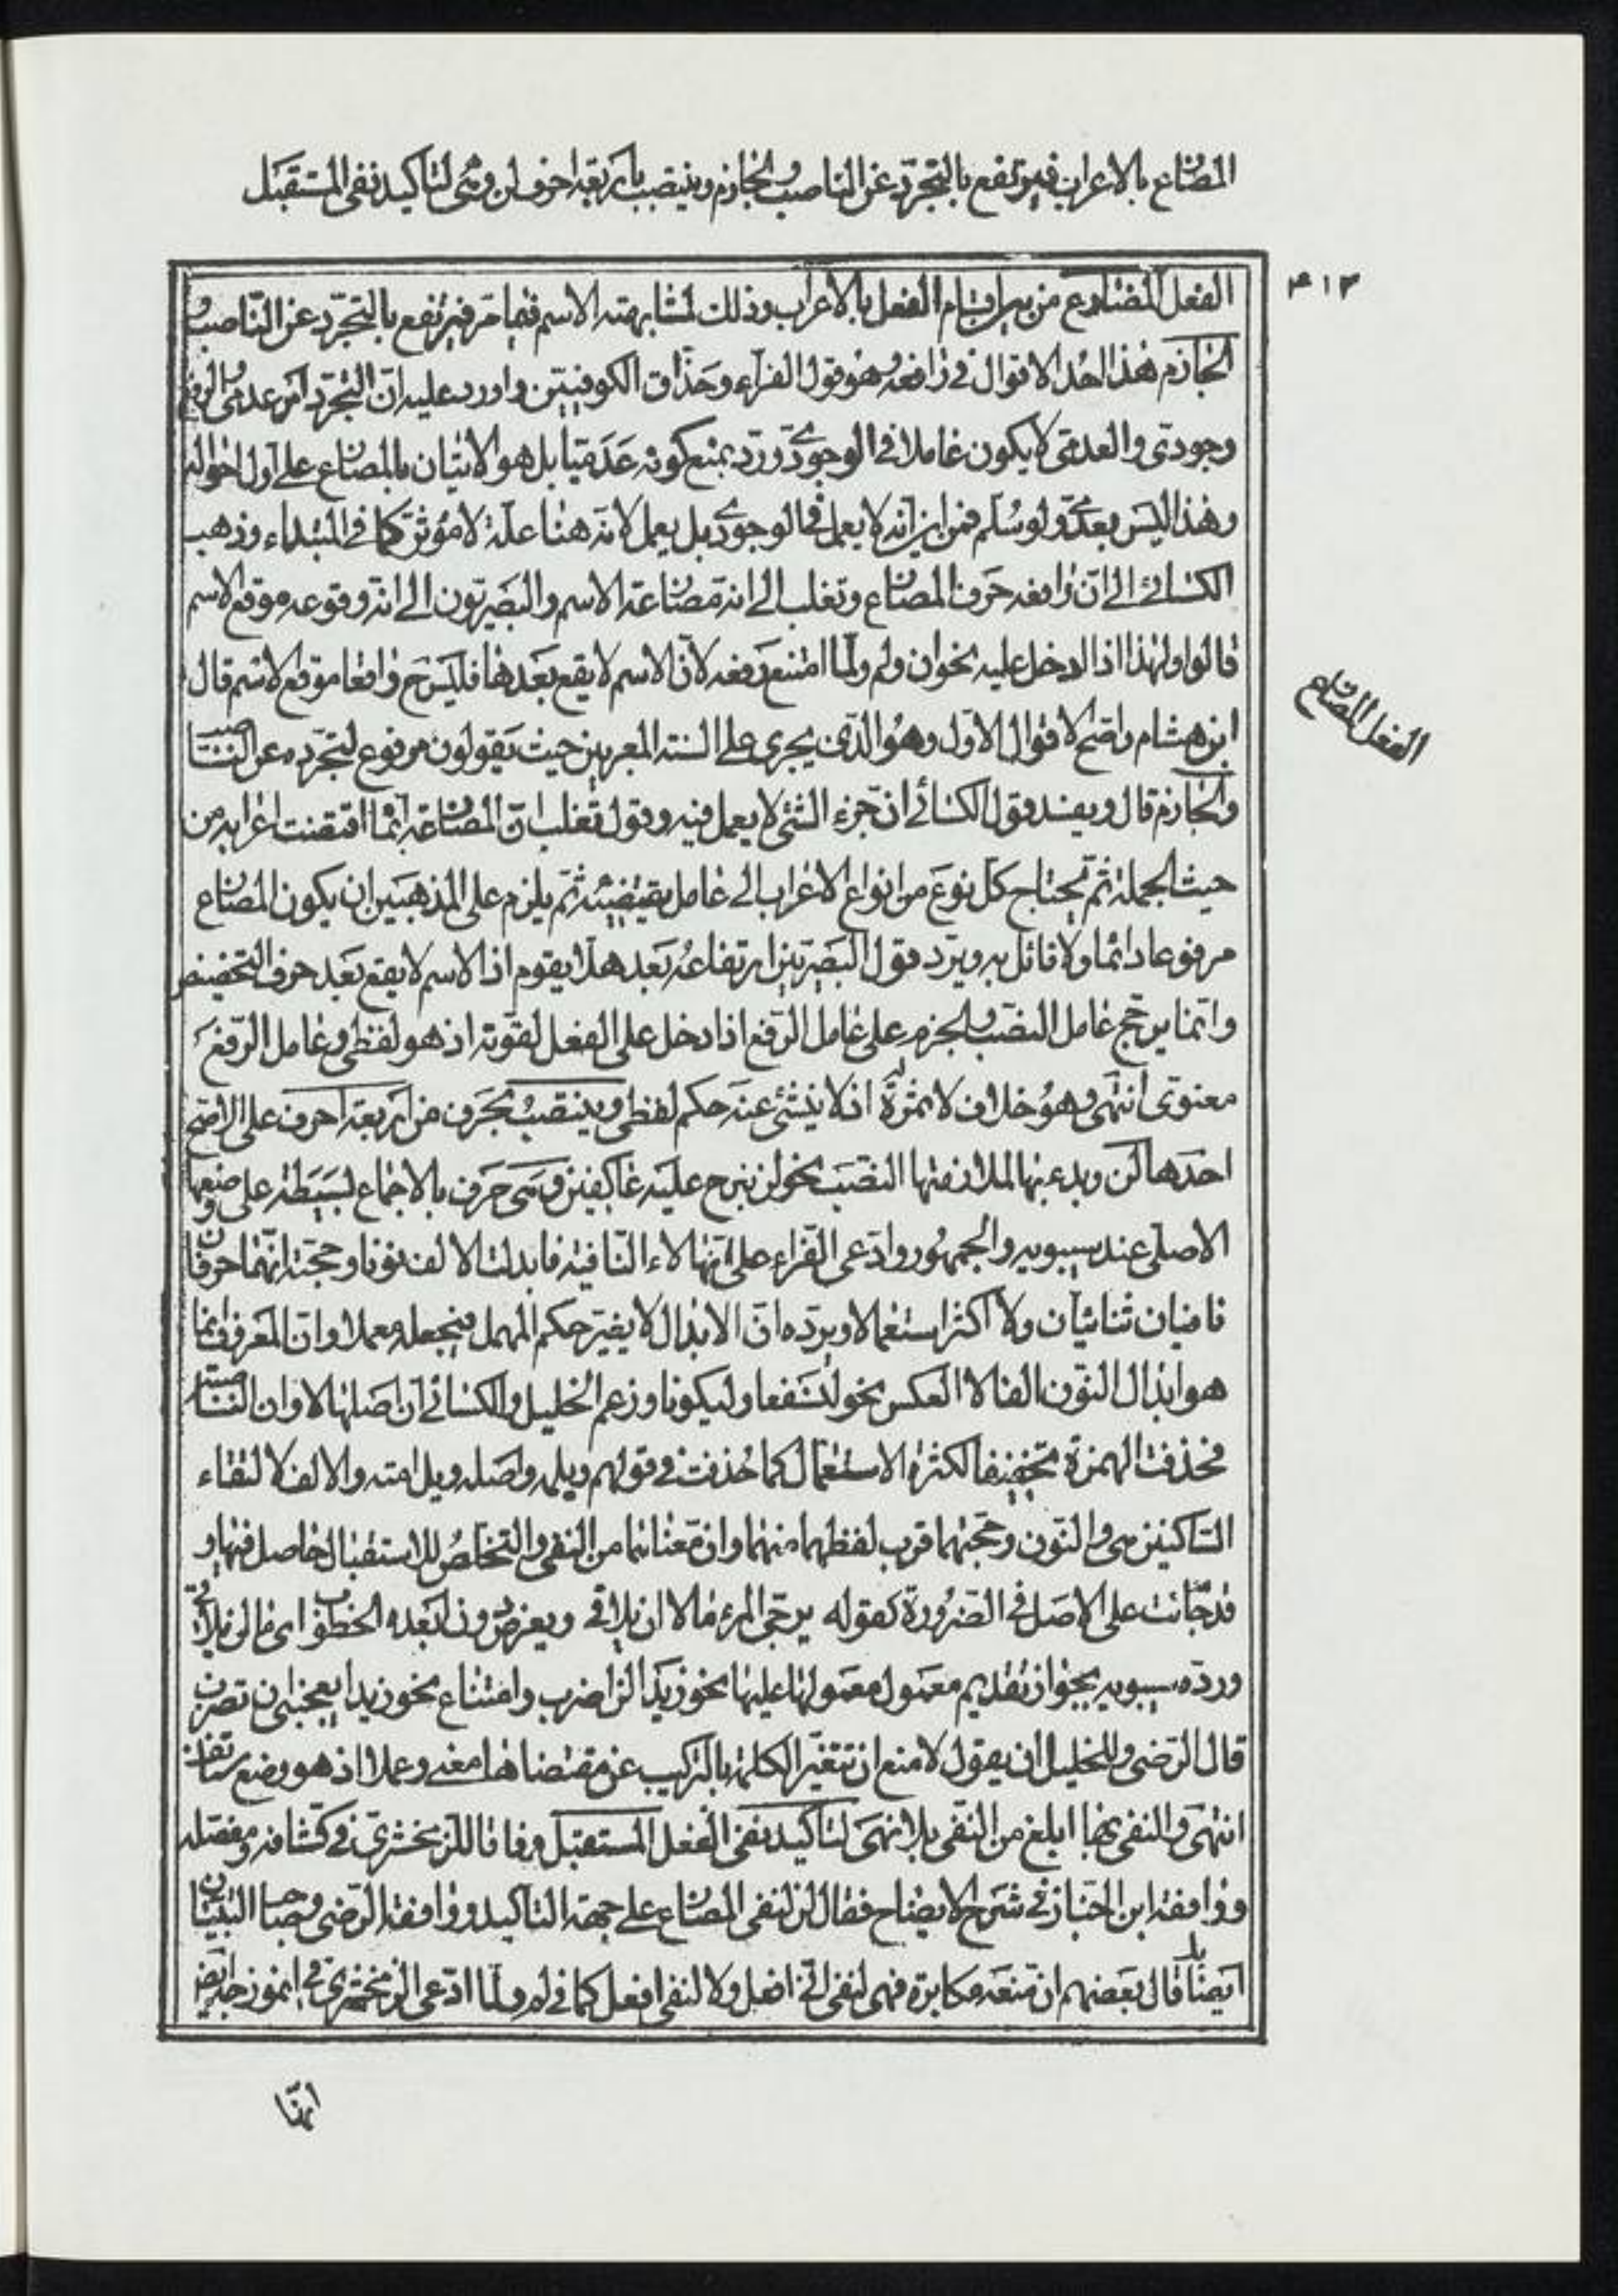 المضارع بالاعراب فيرتفع بالتجرّد عن الناصب والجازم وينتصب باربعة احرف لن وهى لتاكيد نفى المستقبل
٤١٣
الفعل المضارع من بين اقسام الفعل بالاعراب وذلك لمشابهته الاسم فيما مرّ فيرتفع بالتجرّد عن النّاصب و
الجازم هذا احد الاقوال فى رافعه وهو قول الفرّاء وحذّاق الكوفيّين واورد عليه انّ التجرّد امر عدمى والرفع
وجودى والعدمى لا يكون عاملا فى الوجودى وردّ بمنع كونه عدميّا بل هو الاتيان بالمضارع على اول احواله
وهذا ليس بعدمى ولو سلّم فمن اين انه لا يعمل فى الوجودى بل يعمل لانه هنا علامة لا مؤثر كما فى المبتداء وذهب
الكسائى الى انّ رافعه حرف المضارع وثعلب الى انه مضارعة الاسم والبصريّون الى انه وقوعه موقع الاسم
قالوا ولهذا اذا دخل عليه نحو ان ولم ولمّا امتنع رفعه لانّ الاسم لا يقع بعدها فليس ح واقعا موقع الاسم قال
ابن هشام واصحّ الاقوال الاوّل وهو الّذى يجرى على السنة المعربين حيث يقولون مرفوع لتجرّده عن الناصب
الفعل المضارع
والجازم قال ويفسد قول الكسائى انّ جزء الشئ لا يعمل فيه وقول ثعلب انّ المضارعة انّما اقتضت اعرابه من
حيث الجملة ثمّ يحتاج كلّ نوع من انواع الاعراب الى عامل يقتضيه ثمّ يلزم على المذهبين ان يكون المضارع
مرفوعا دائما ولا قائل به ويردّ قول البصريّين ارتفاعه بعد هلّا يقوم اذ الاسم لا يقع بعد حرف التحضيض
وانّما يرجّح عامل النصب والجزم على عامل الرّفع اذا دخل على الفعل لقوّته اذ هو لفظى وعامل الرّفع
معنوى انتهى وهو خلاف لا ثمرة له اذ لا ينشئ عنه حكم لفظى وينتصب بحرف من اربعة احرف على الاصحّ
احدها لن وبدء بها لملازمتها النصب نحو لن نبرح عليه عاكفين وهى حرف بالاجماع بسيطة على وضعها
الاصلى عند سيبويه والجمهور وادّعى الفرّاء على انّها لاء النّافية فابدلت الالف نونا وحجّته انّهما حرفان
نافيان ثنائيان ولا اكثر استعمالا ويردّه انّ الابدال لا يغيّر حكم المهمل فيجعله معملا وانّ المعروف انما
هو ابدال النّون الفا لا العكس نحو لنسفعا وليكونا وزعم الخليل والكسائى انّ اصلها لا وان الناصبة
فحذفت الهمزة تخفيفا لكثرة الاستعمال كما حذفت فى قولهم ويلمه واصله ويل امه والالف لالتقاء
السّاكنين هى والنّون وحجّتهما قرب لفظهما منهما وانّ معناهما من النفى والتخلّص للاستقبال حاصل فيها و
قد جائت على الاصل فى الضرورة كقوله يرجّى المرء ما لا ان يلاقى ويعرض دون ابعده الخطوب اى ما لن يلاقى
وردّه سيبويه بجواز تقديم معمول معمولها عليها نحو زيدا لن اضرب وامتناع نحو زيدا يعجبنى ان تضرب
قال الرّضى وللخليل ان يقول لا منع ان تتغيّر الكلمة بالتركيب عن مقتضاها معنى وعملا اذ هو وضع مستانف
انتهى والنفى بها ابلغ من النّفى بلا فهى لتاكيد نفى الفعل المستقبل وفاقا للزمخشرى فى كشافه ومفصّله
ووافقه ابن الخبّاز فى شرح الايضاح فقال لن لنفى المضارع على جهة التاكيد ووافقه الرّضى وصاحب التبيان
ايضا بل قال بعضهم ان منعه مكابرة فهى لنفى انّى افعل ولا لنفى افعل كما فى لم ولمّا ادّعى الزمخشرى فى انموذجه ايضا
انّها